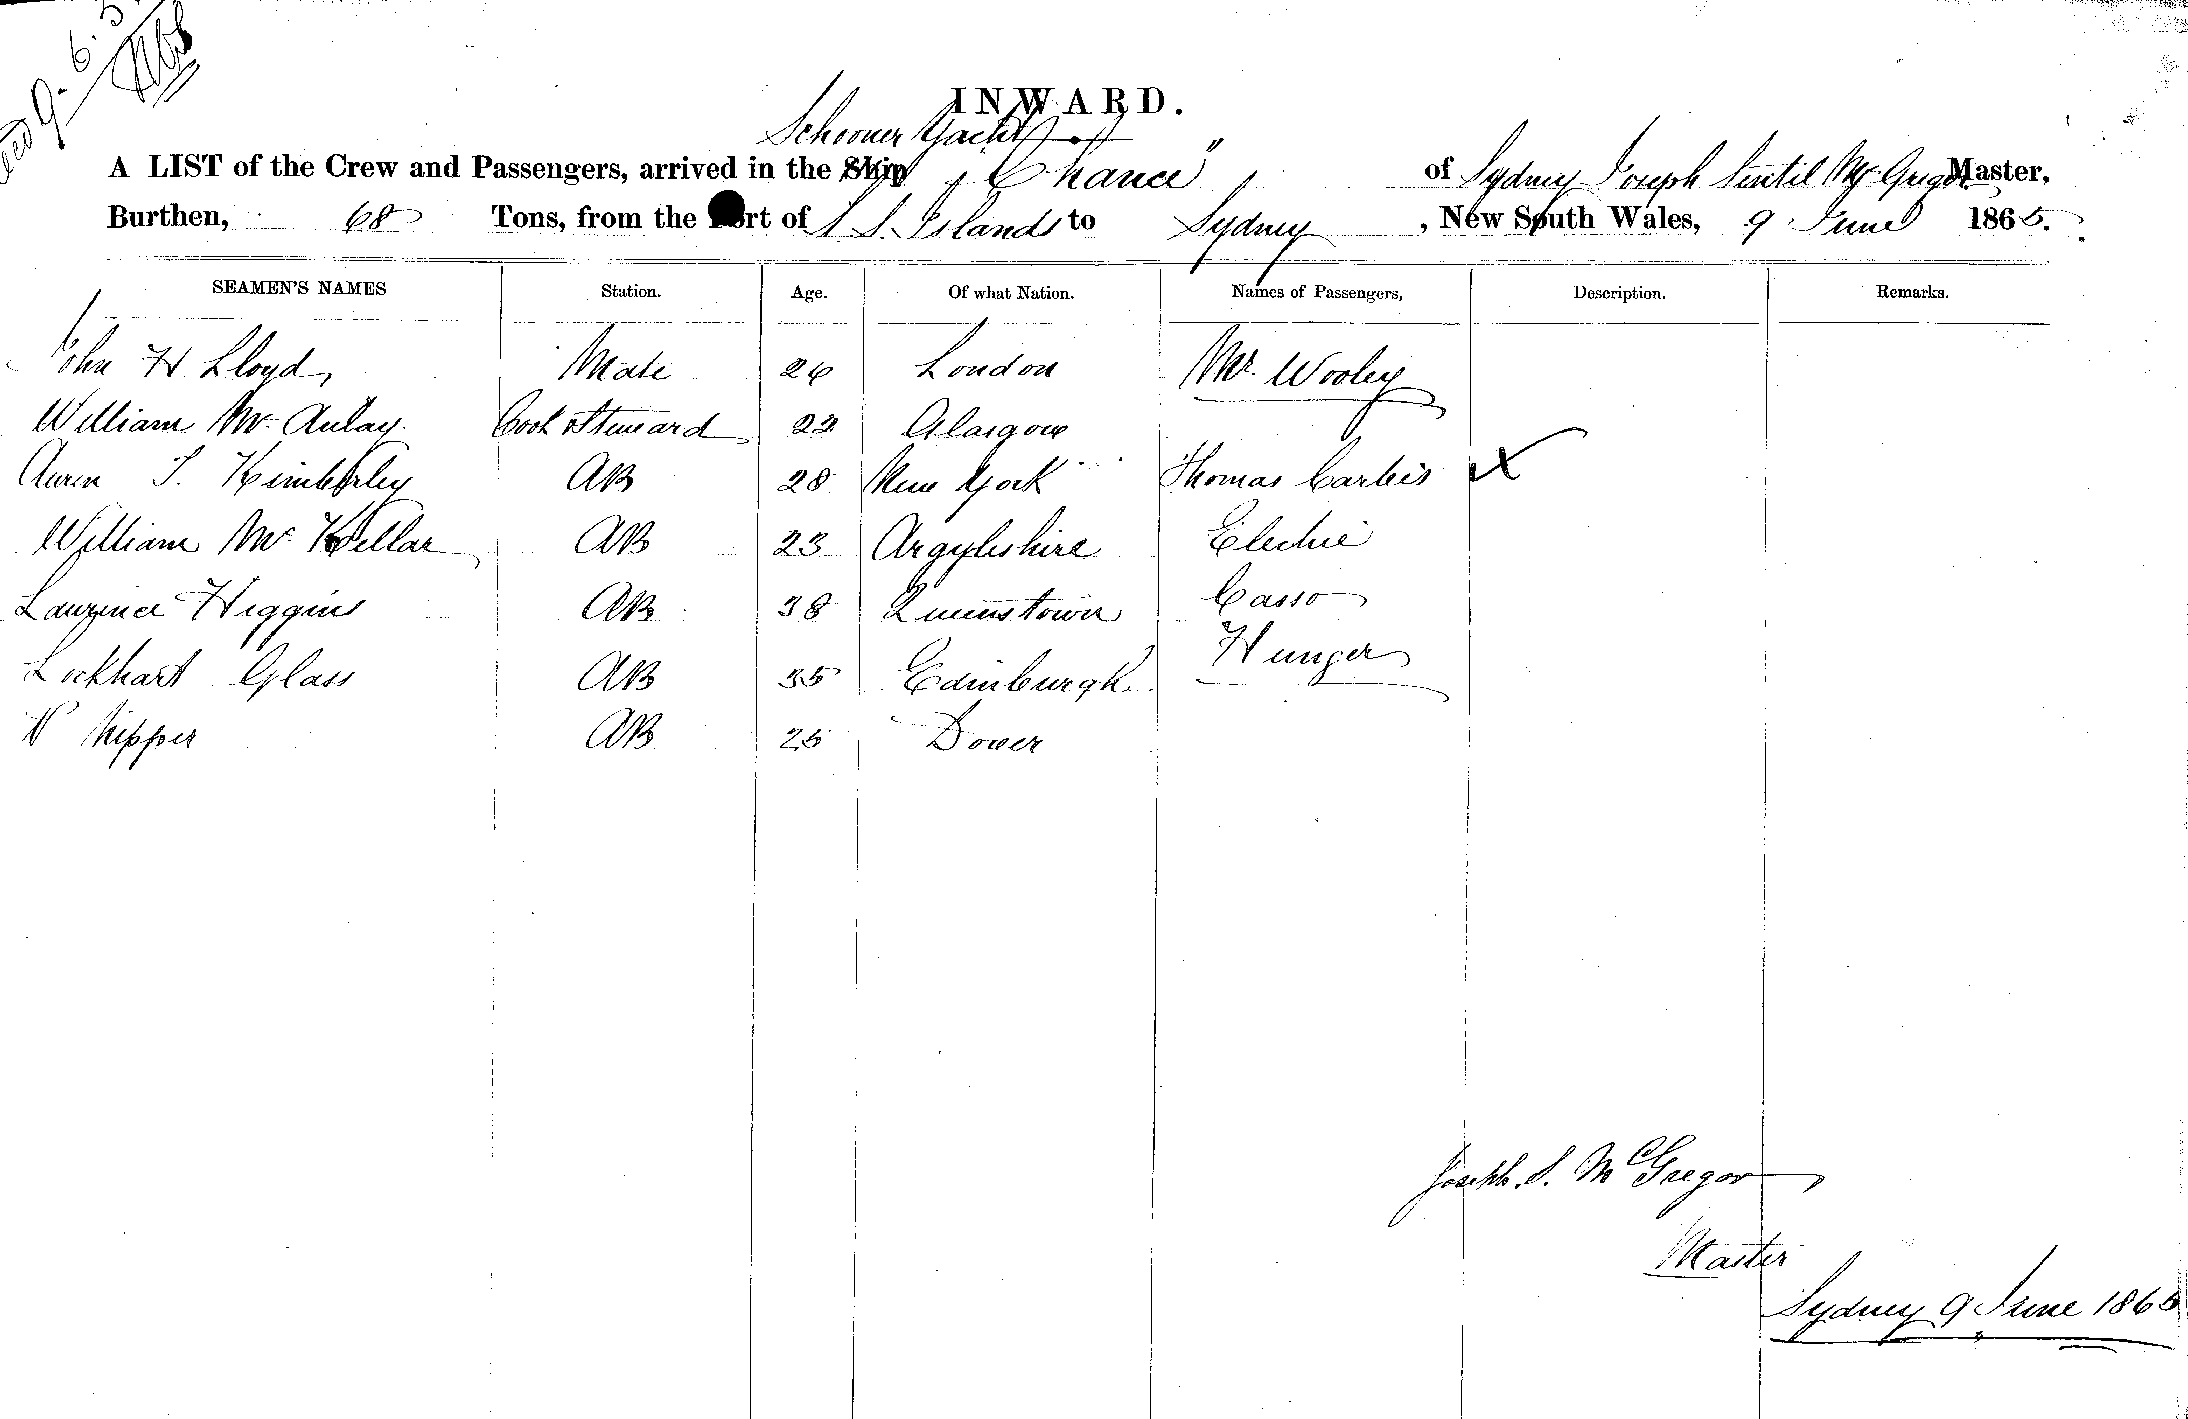 9. 6. 5
INWARD.
Schooner Yacht
A LIST of the Crew and Passengers, arrived in the Ship "Chance" of Sydney Joseph McGregor Master,
Burthen, 68 Tons, from the Port of S. S. Islands to Sydney, New South Wales, 9 June 1865.
SEAMEN'S NAMES Station. Age. Of what Nation. Names of Passengers, Description. Remarks.
John H Lloyd Mate 26 London Mr. Wooley
William Mc Aulay Cook & Steward 22 Glasgow
T. Kimberley AB 28 New York Thomas X
William Mc Kellar AB 23 Argyleshire Elechie
Laurence Higgins AB 38 Queenstown Casso
Lockhart Glass AB 35 Edinburgh Hunger
N Nipper AB 25 Dover
Joseph. S. McGregor
Master
Sydney 9 June 1865